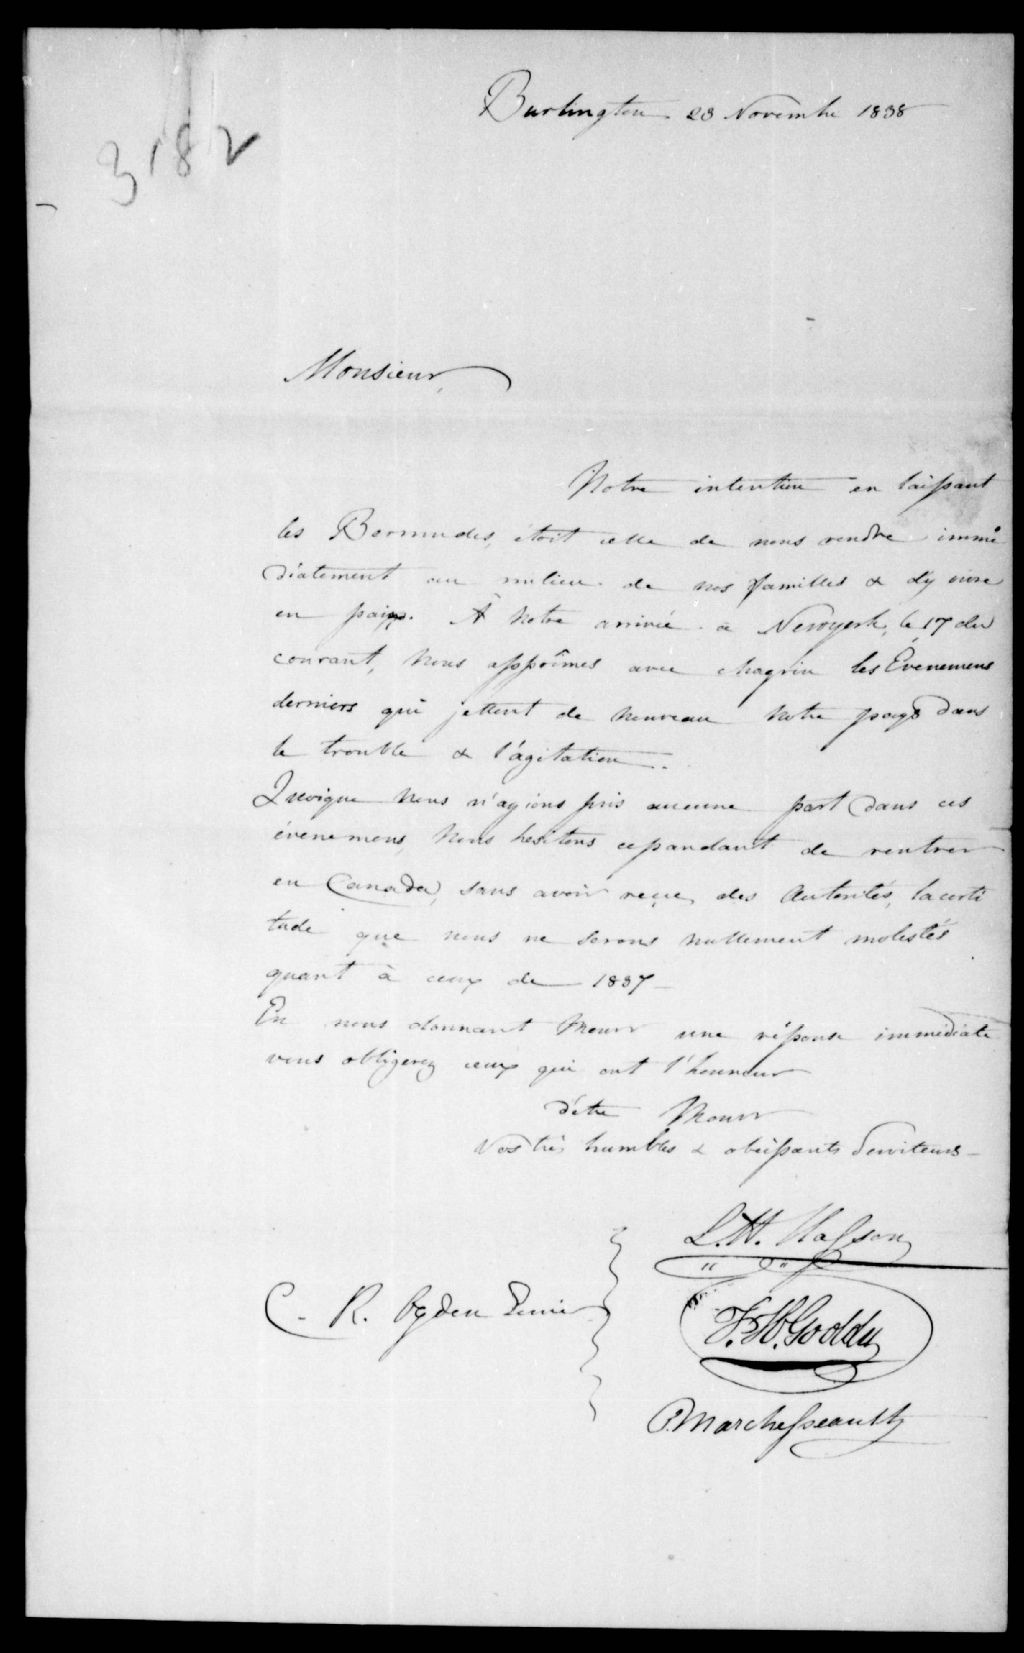 Burlington 23 Novembre 1838
3182
Monsieur,
Notre intention en laissant
les Bermudes, étoit celle de nous rendre immé
diatement au milieu de nos familles & d'y vivre
en paix. À notre arrivée à Newyork, le 17 du
courant, nous apprîmes avec chagrin les Évenemens
derniers qui jettent de nouveau notre pays dans
le trouble & l'agitation.
Quoique nous n'ayions pris aucune part dans ces
évenemens, nous hesitons cependant de rentrer
en Canada, sans avoir reçue, des Autorités, la certi
tude que nous ne serons nullement molestés
quant à ceux de 1837 –
En nous donnant Monsr une réponse immédiate
vous obligerez ceux qui ont l'honneur
d'être Monsr
Vos très humbles & obéissants Serviteurs –
L. H. Masson
F. M. Goddu
C. R. Ogden Ecuier
P. Marchesseault